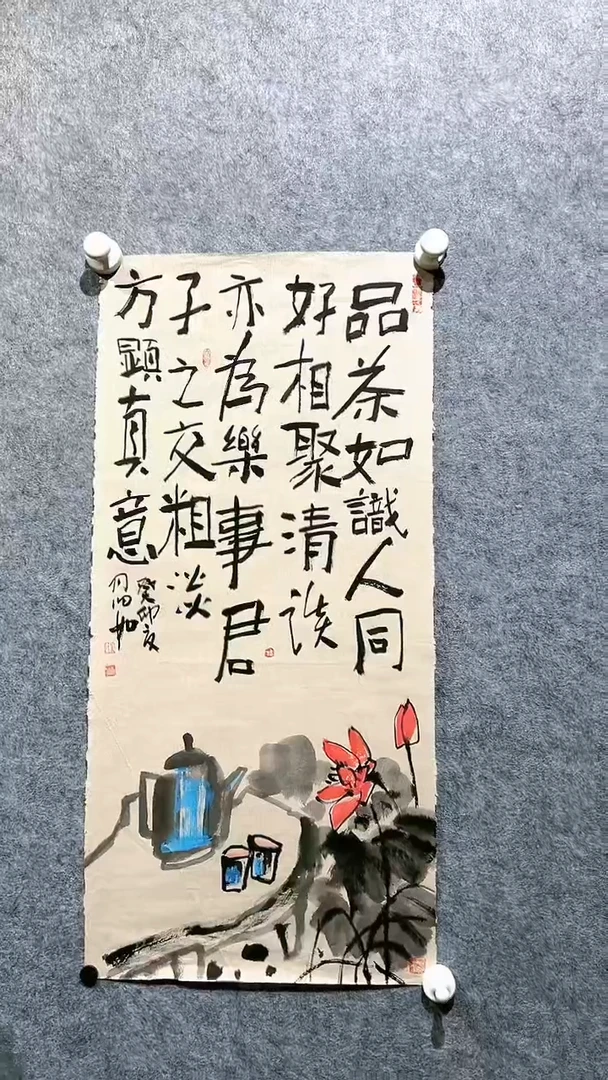 品茶如識人同
好相聚清談
亦為樂事君
子之交粗淡
方顯真意
癸卯夏